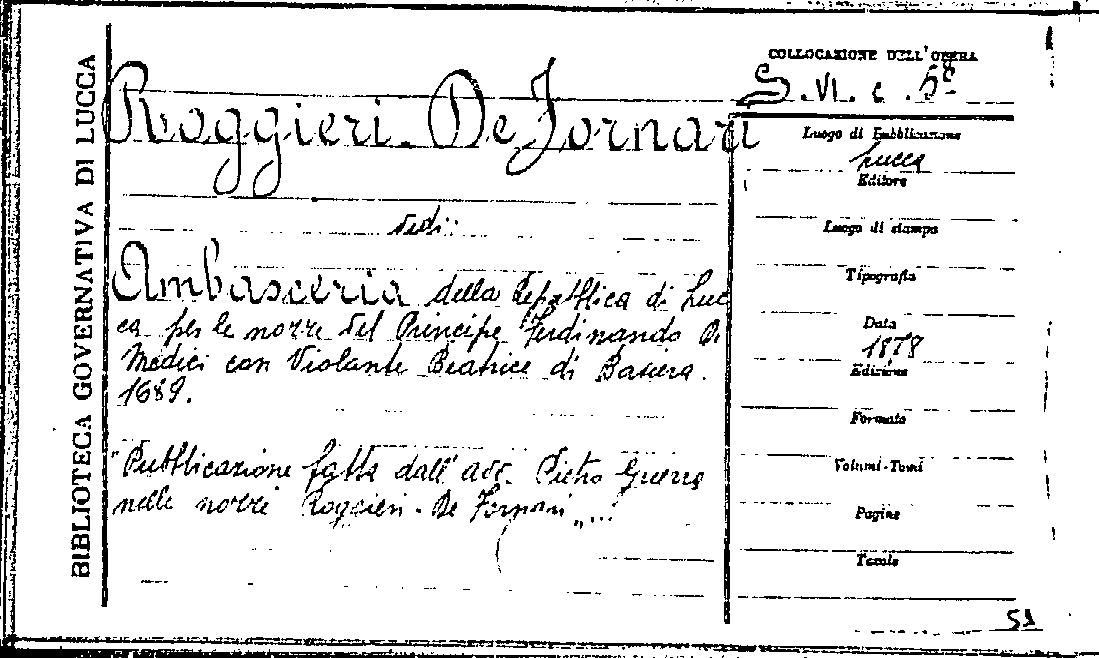 BIBLIOTECA GOVERNATIVA DI LUCCA
Roggieri. De Fornari
vedi:
Ambasceria della Repubblica di Luc
ca per le nozze del Principe Ferdinando De
Medici con Violante Beatrice di Baviera.
1689.
"Pubblicazione fatta dall' avv. Pietro Guerra
nelle nozze Roggieri - De Fornari „...
COLLOCAZIONE DELL'OPERA
S. VI. c. 5
Luogo di Pubblicazione
Lucca
Editore
Luogo di stampa
Tipografia
Data
1878
Edizione
Formato
Volumi-Tomi
Pagine
Tavole
51